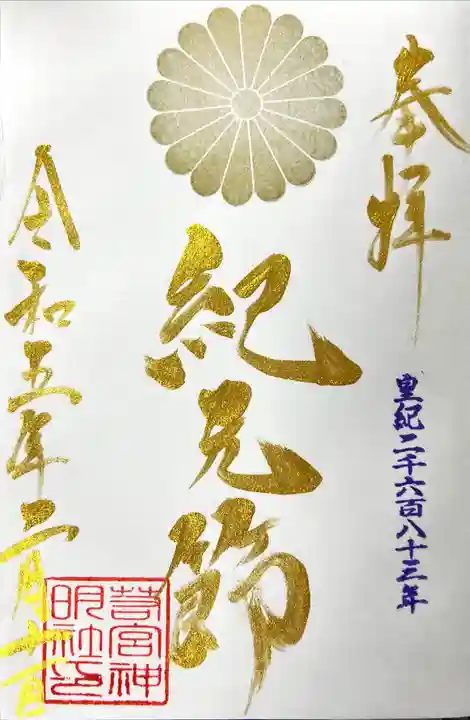 奉拝
皇紀二千六百八十三年
紀元節
令和五年二月十一日
若宮神
明社印